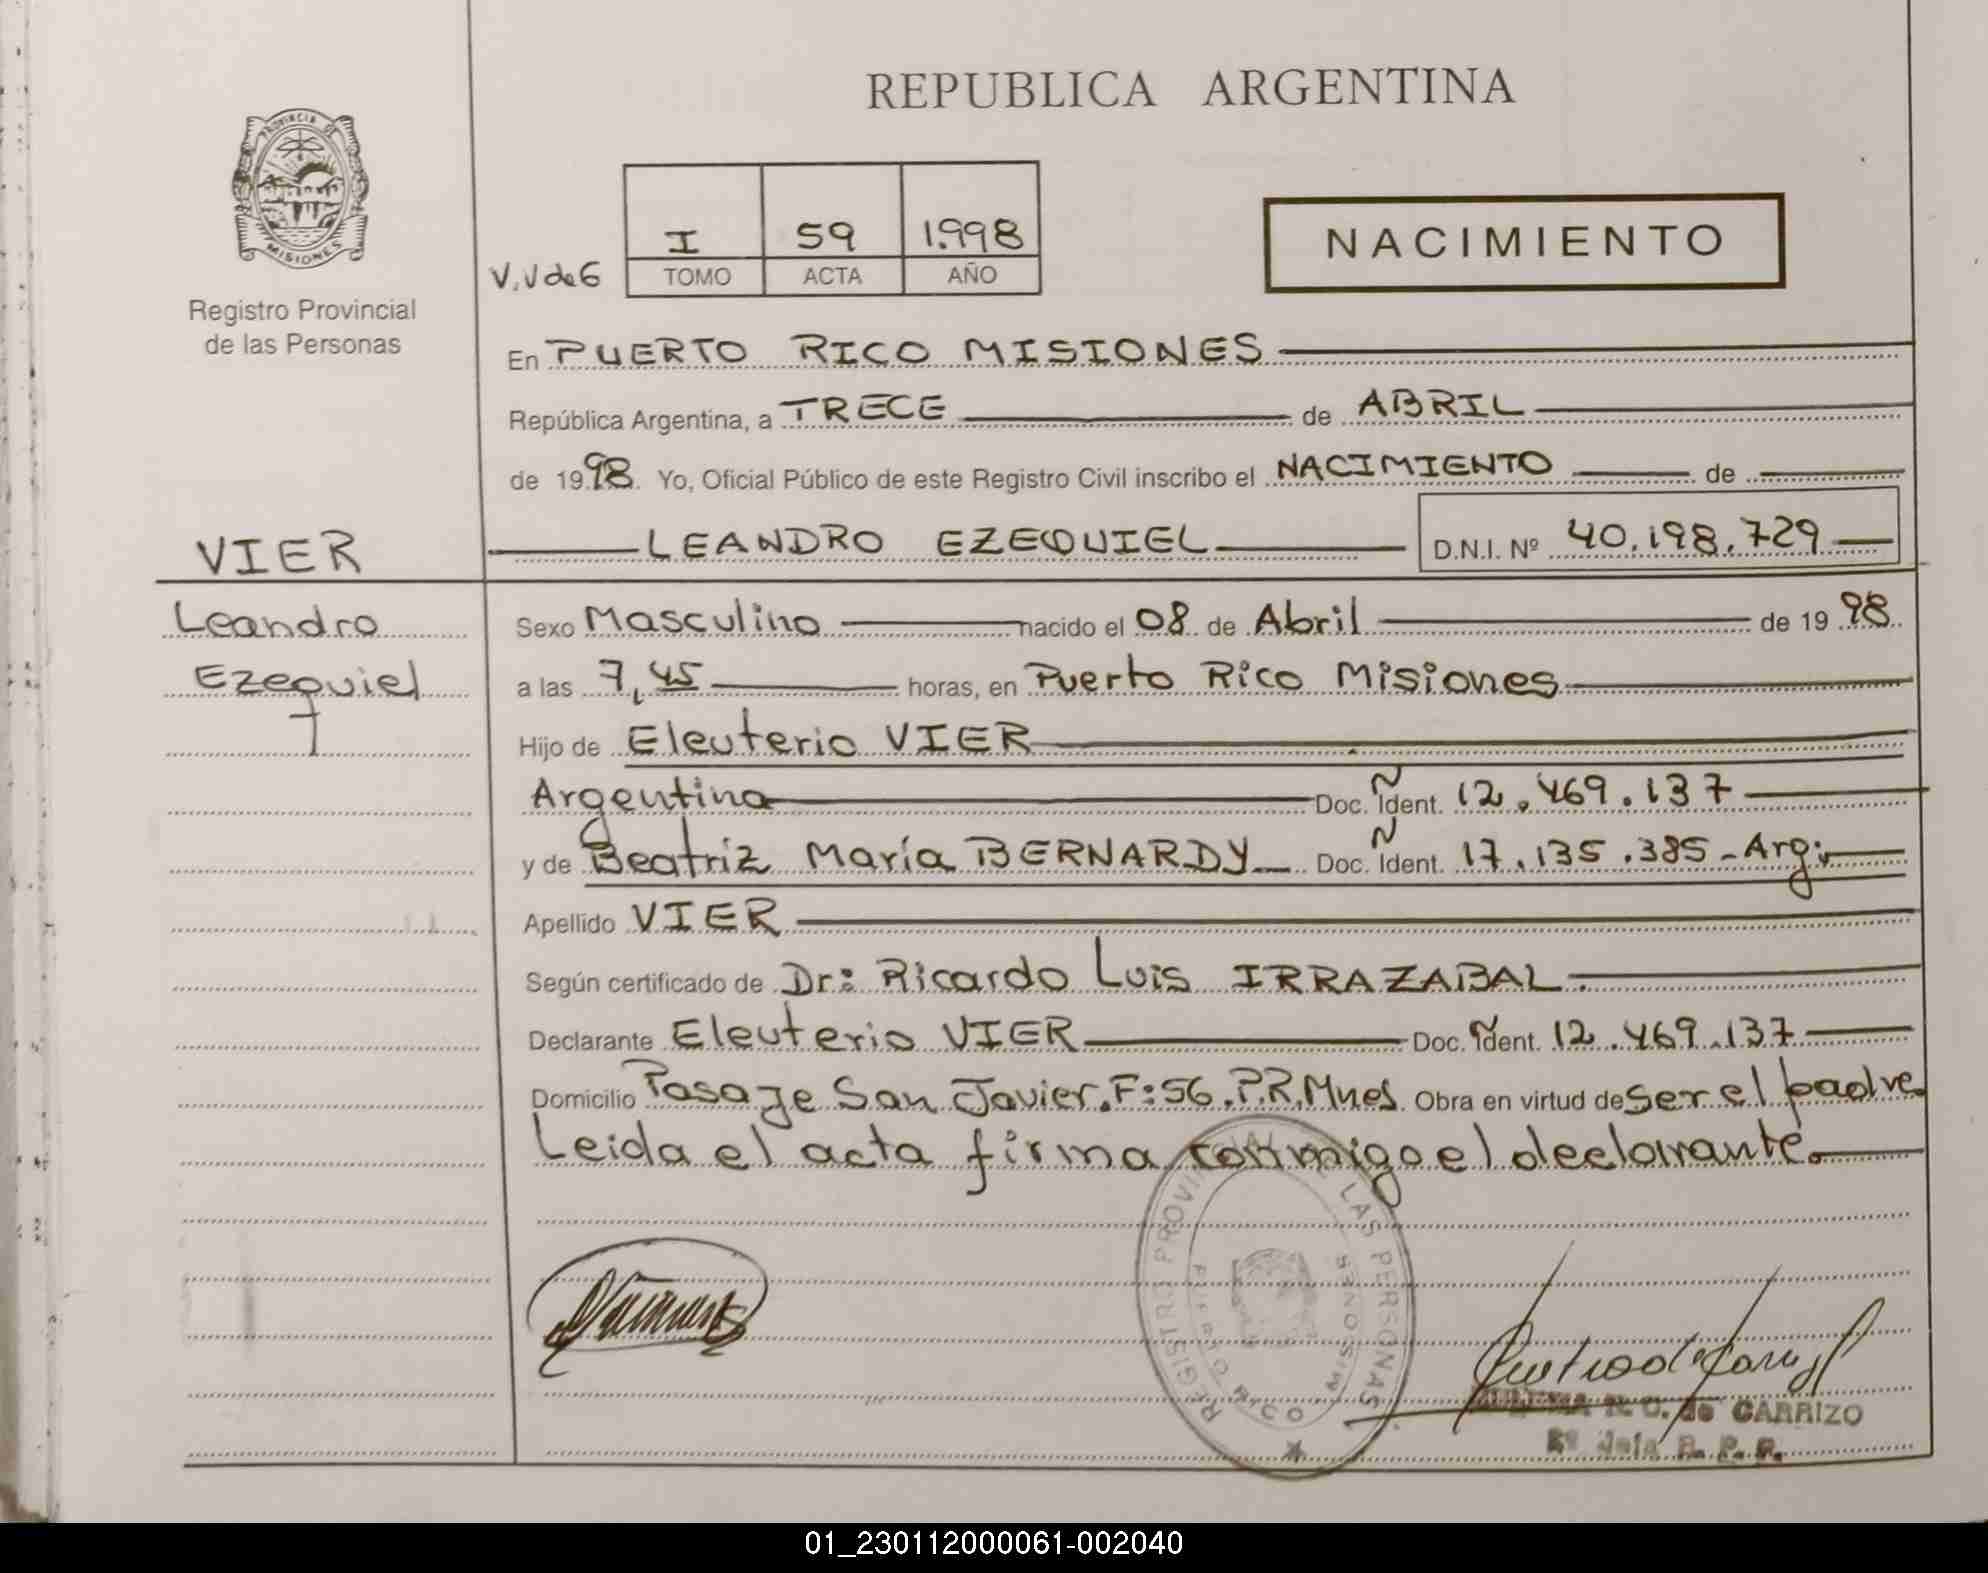 REPUBLICA ARGENTINA
PROVINCIA DE
MISIONES
Registro Provincial
de las Personas
I 59 1.998
V.V de G TOMO ACTA AÑO
NACIMIENTO
En PUERTO RICO MISIONES
República Argentina, a TRECE de ABRIL
de 19 98. Yo, Oficial Público de este Registro Civil inscribo el NACIMIENTO de
VIER LEANDRO EZEQUIEL D.N.I. Nº 40.198.729
Leandro Sexo Masculino nacido el 08 de Abril de 19 98
Ezequiel a las 7,45 horas, en Puerto Rico Misiones
Hijo de Eleuterio VIER
Argentina Doc. Ident. 12.469.137
y de Beatriz María BERNARDY Doc. Ident. 17.135.385 - Arg.
Apellido VIER
Según certificado de Dr: Ricardo Luis IRRAZABAL.
Declarante Eleuterio VIER Doc. Ident. 12.469.137
Domicilio Pasaje San Javier.F:56.P.R.Mnes. Obra en virtud de ser el padre
Leida el acta firma conmigo el declarante.
REGISTRO PROVINCIAL DE LAS PERSONAS
PUERTO RICO
MISIONES
R. C. de CARRIZO
Jefa R. P. P.
01_230112000061-002040